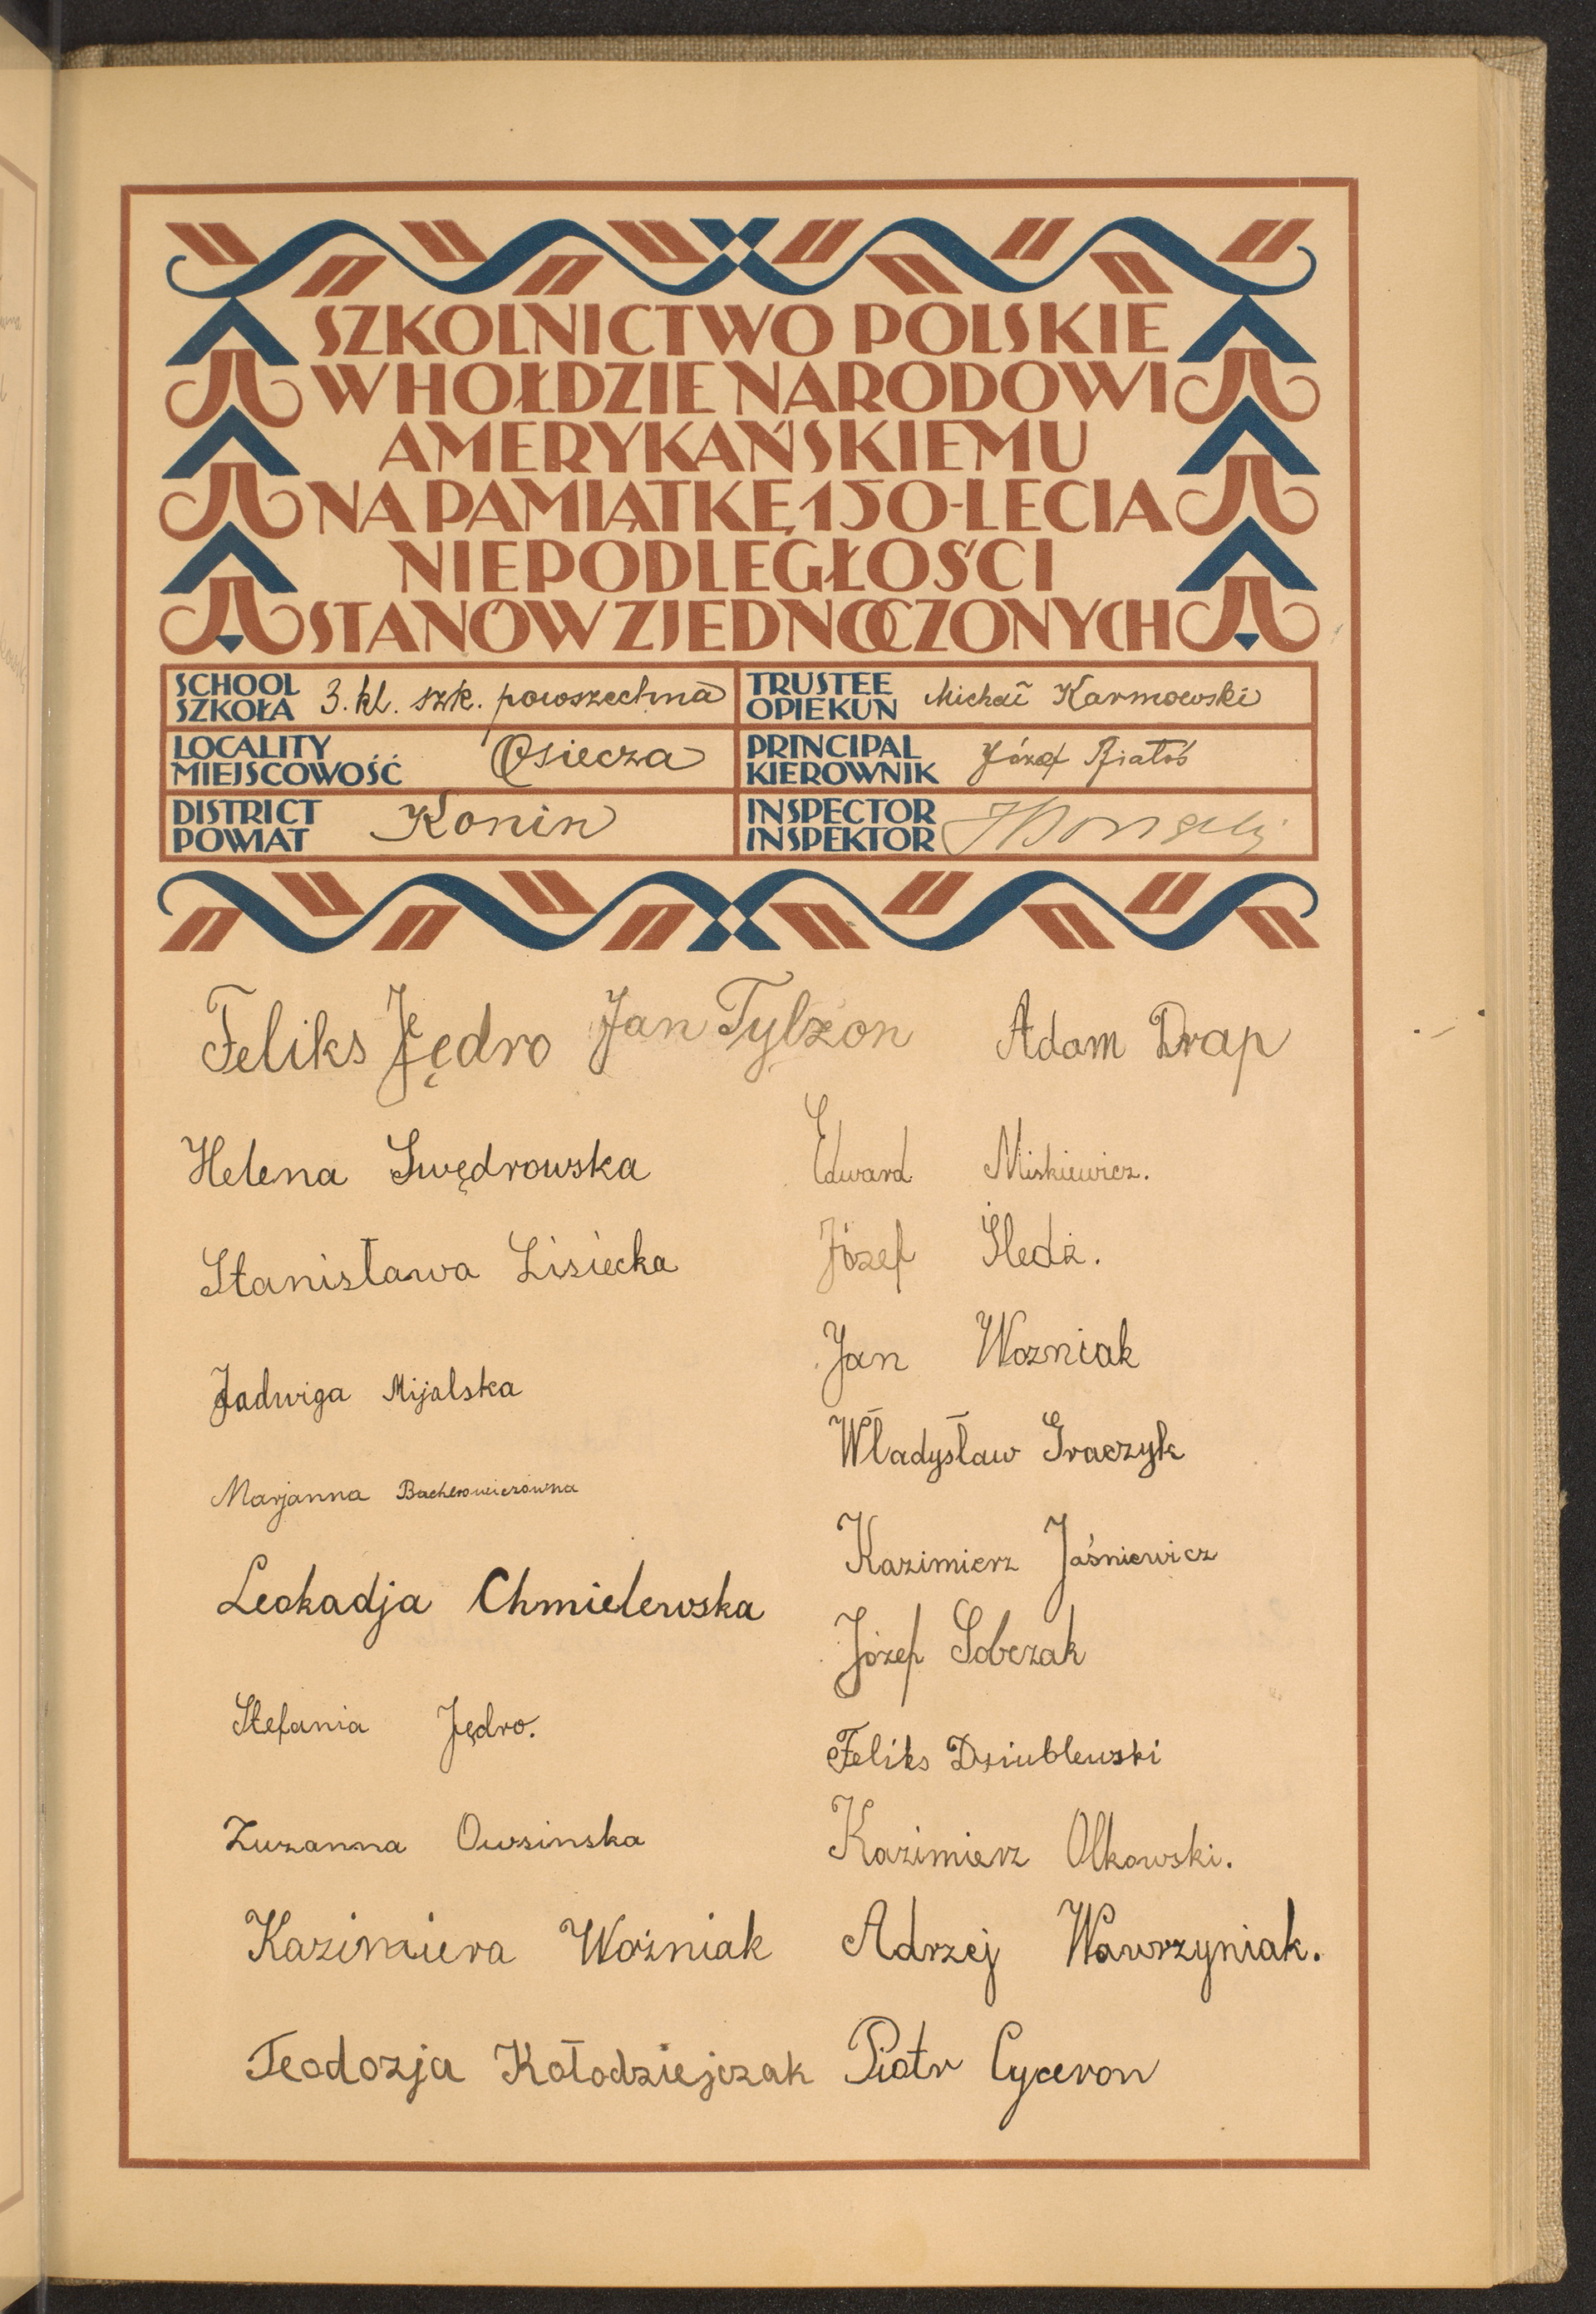 SZKOLNICTWO POLSKIE
W HOŁDZIE NARODOWI
AMERYKAŃSKIEMU
NA PAMIĄTKĘ 150-LECIA
NIEPODLEGŁOŚCI
STANÓW ZJEDNOCZONYCH
SCHOOL
SZKOŁA
3. kl. szk. powszechna
TRUSTEE
OPIEKUN
Michał Karmowski
LOCALITY
MIEJSCOWOŚĆ
Osiecza
PRINCIPAL
KIEROWNIK
Józef Białoś
DISTRICT
POWIAT
Konin
INSPECTOR
INSPEKTOR
Feliks Jędro
Jan Tylżon
Adam Drap
Helena Swędrowska
Stanisława Lisiecka
Jadwiga Mijalska
Marjanna Bachtrowiczówna
Leokadja Chmielewska
Stefania Jędro.
Zuzanna Owsinska
Kazimiera Woźniak
Teodozja Kołodziejczak
Edward Miskiewicz.
Józef Śledź.
Jan Wozniak
Władysław Graczyk
Kazimierz Jaśniewicz
Józef Sobczak
Feliks Dziublewski
Kazimierz Olkowski.
Adrzej Wawrzyniak.
Piotr Cyceron